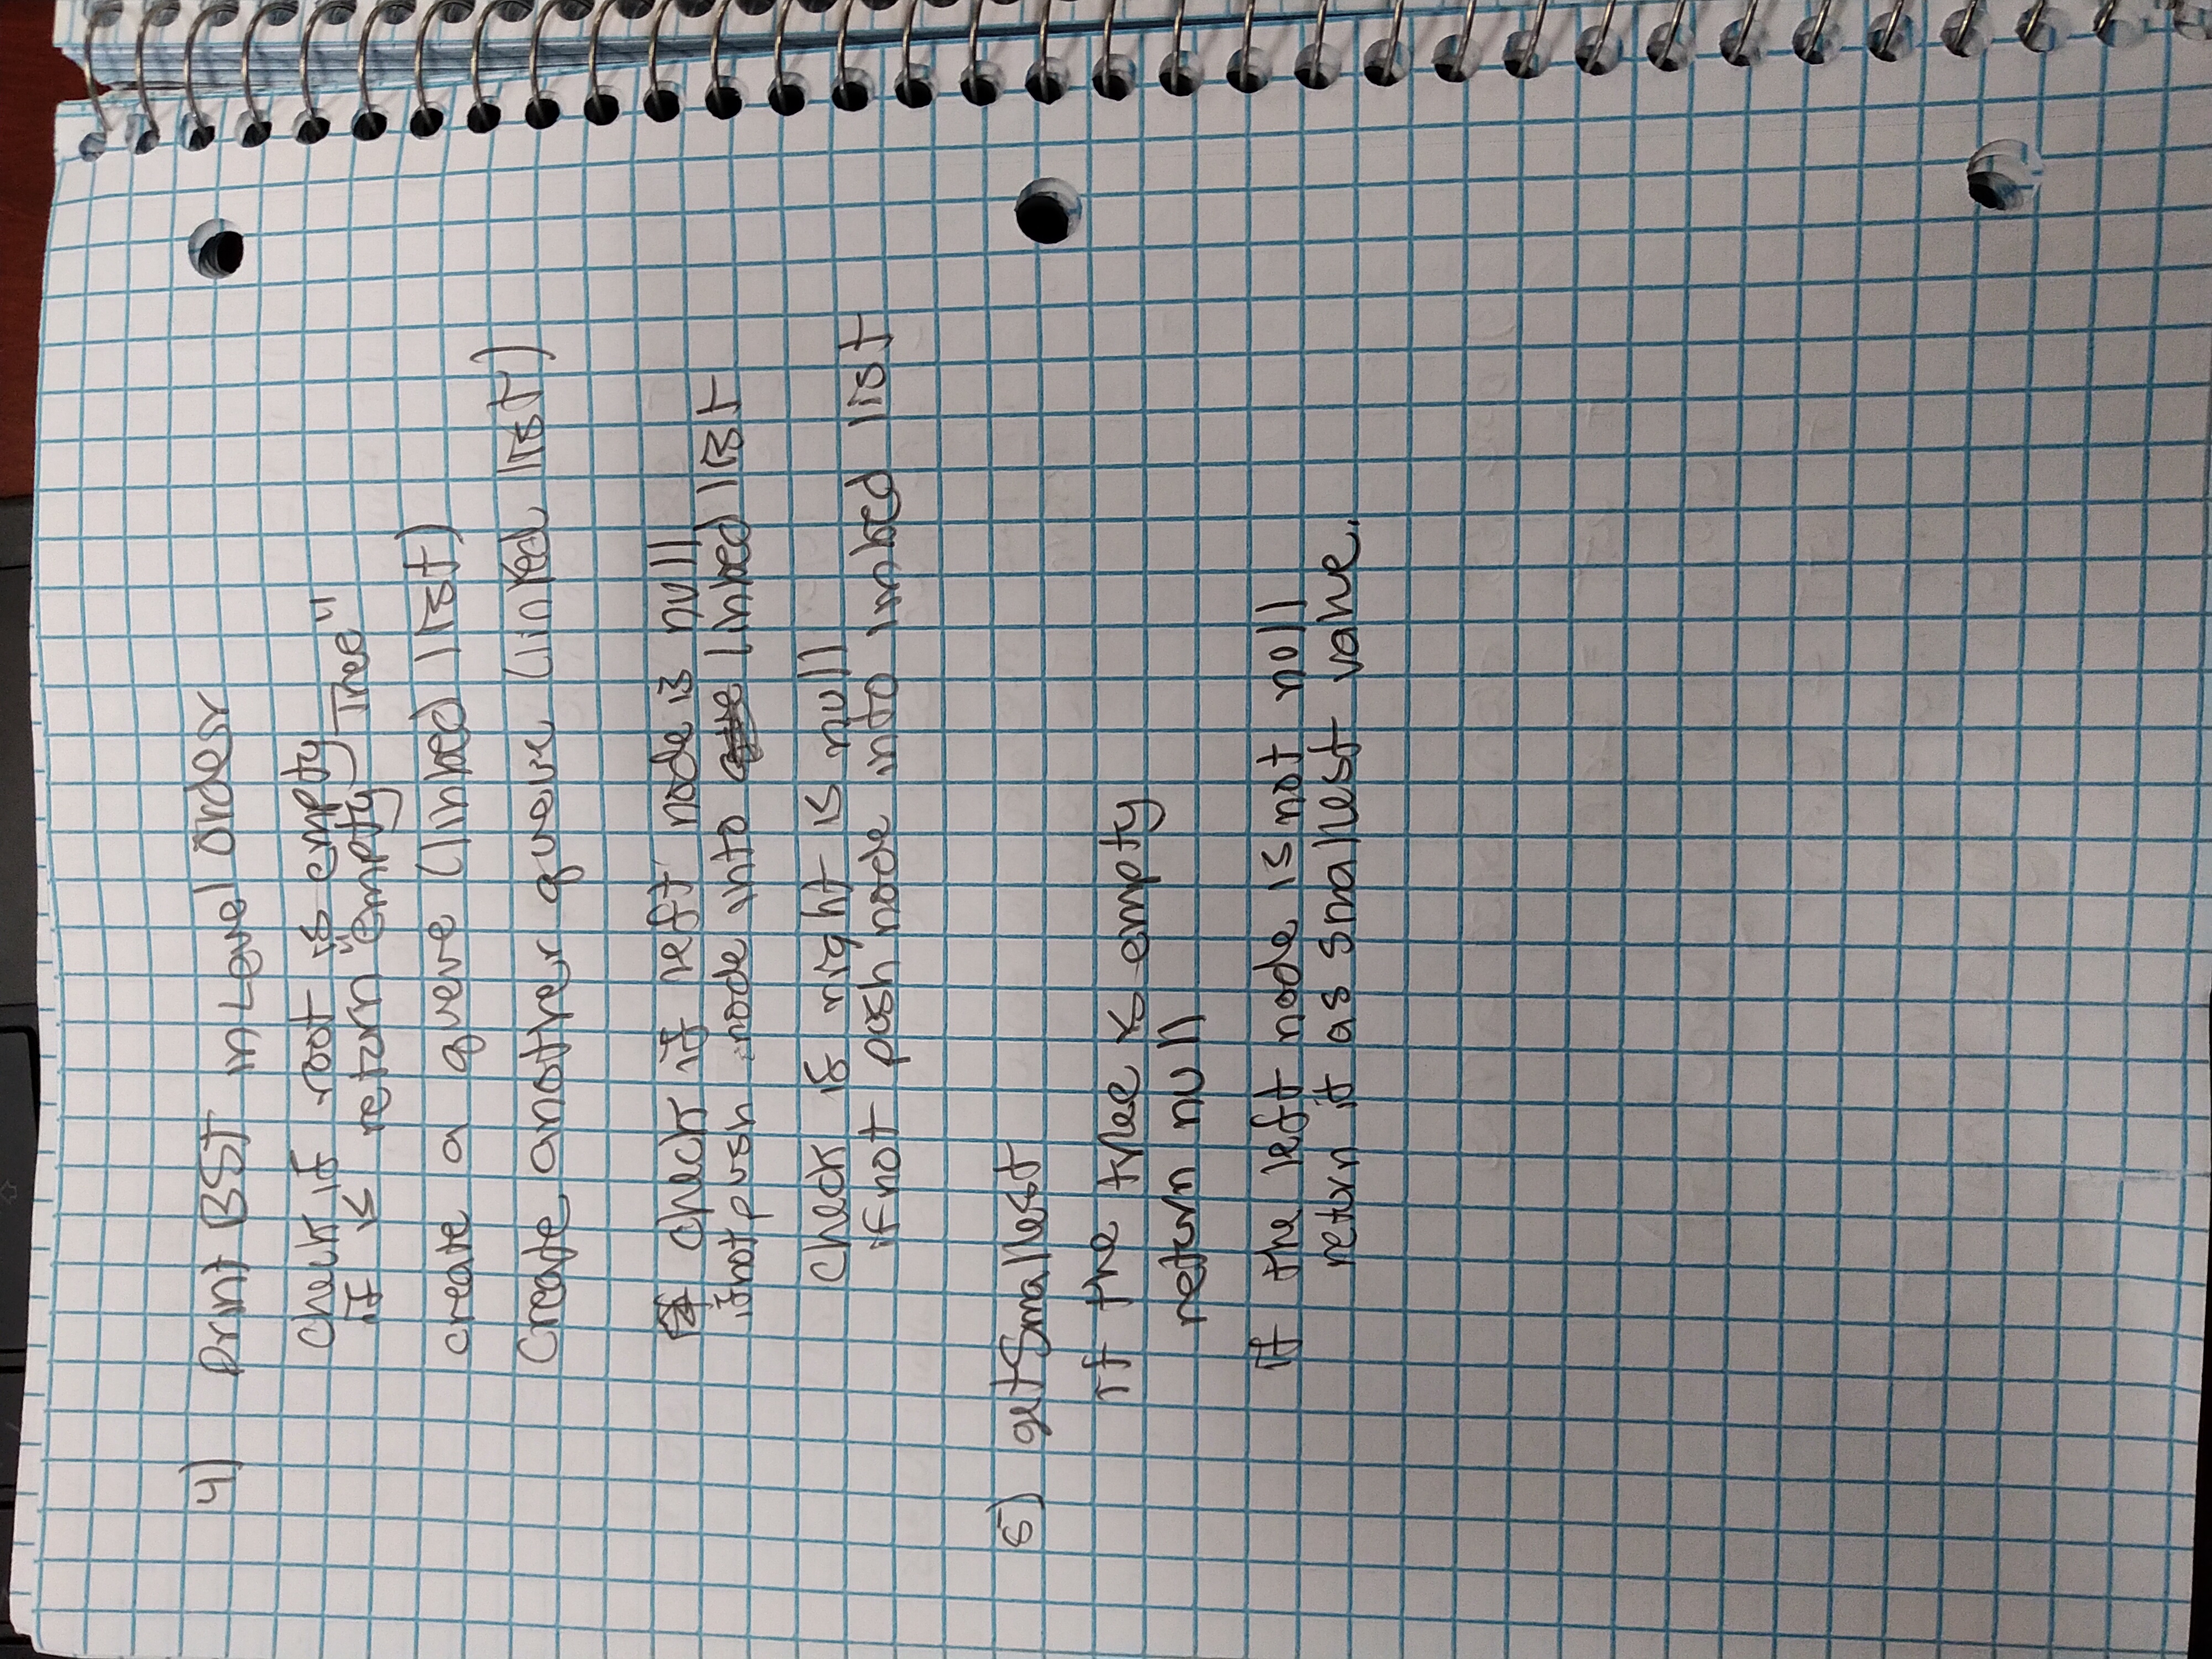 4) Print BST in Level Order
check if root is empty
if is return "empty Tree"
create a queue (linked list)
Create another queue (linked list)
check if left node is null
if not push node into linked list
check if right is null
if not push node into linked list
5) getSmallest
if the tree is empty
return null
if the left node is not null
return it as smallest value.